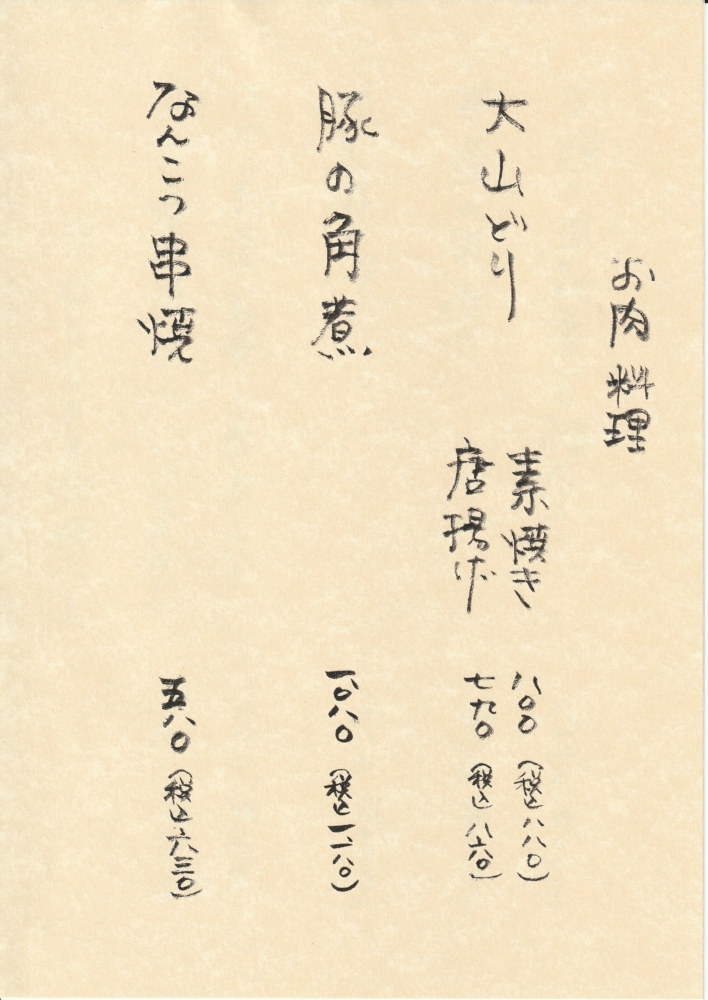 お肉料理
大山どり
素焼き 八〇〇（税込八八〇）
唐揚げ 七九〇（税込八六〇）
豚の角煮 一〇八〇（税込一一八〇）
なんこつ串焼 五八〇（税込六三〇）